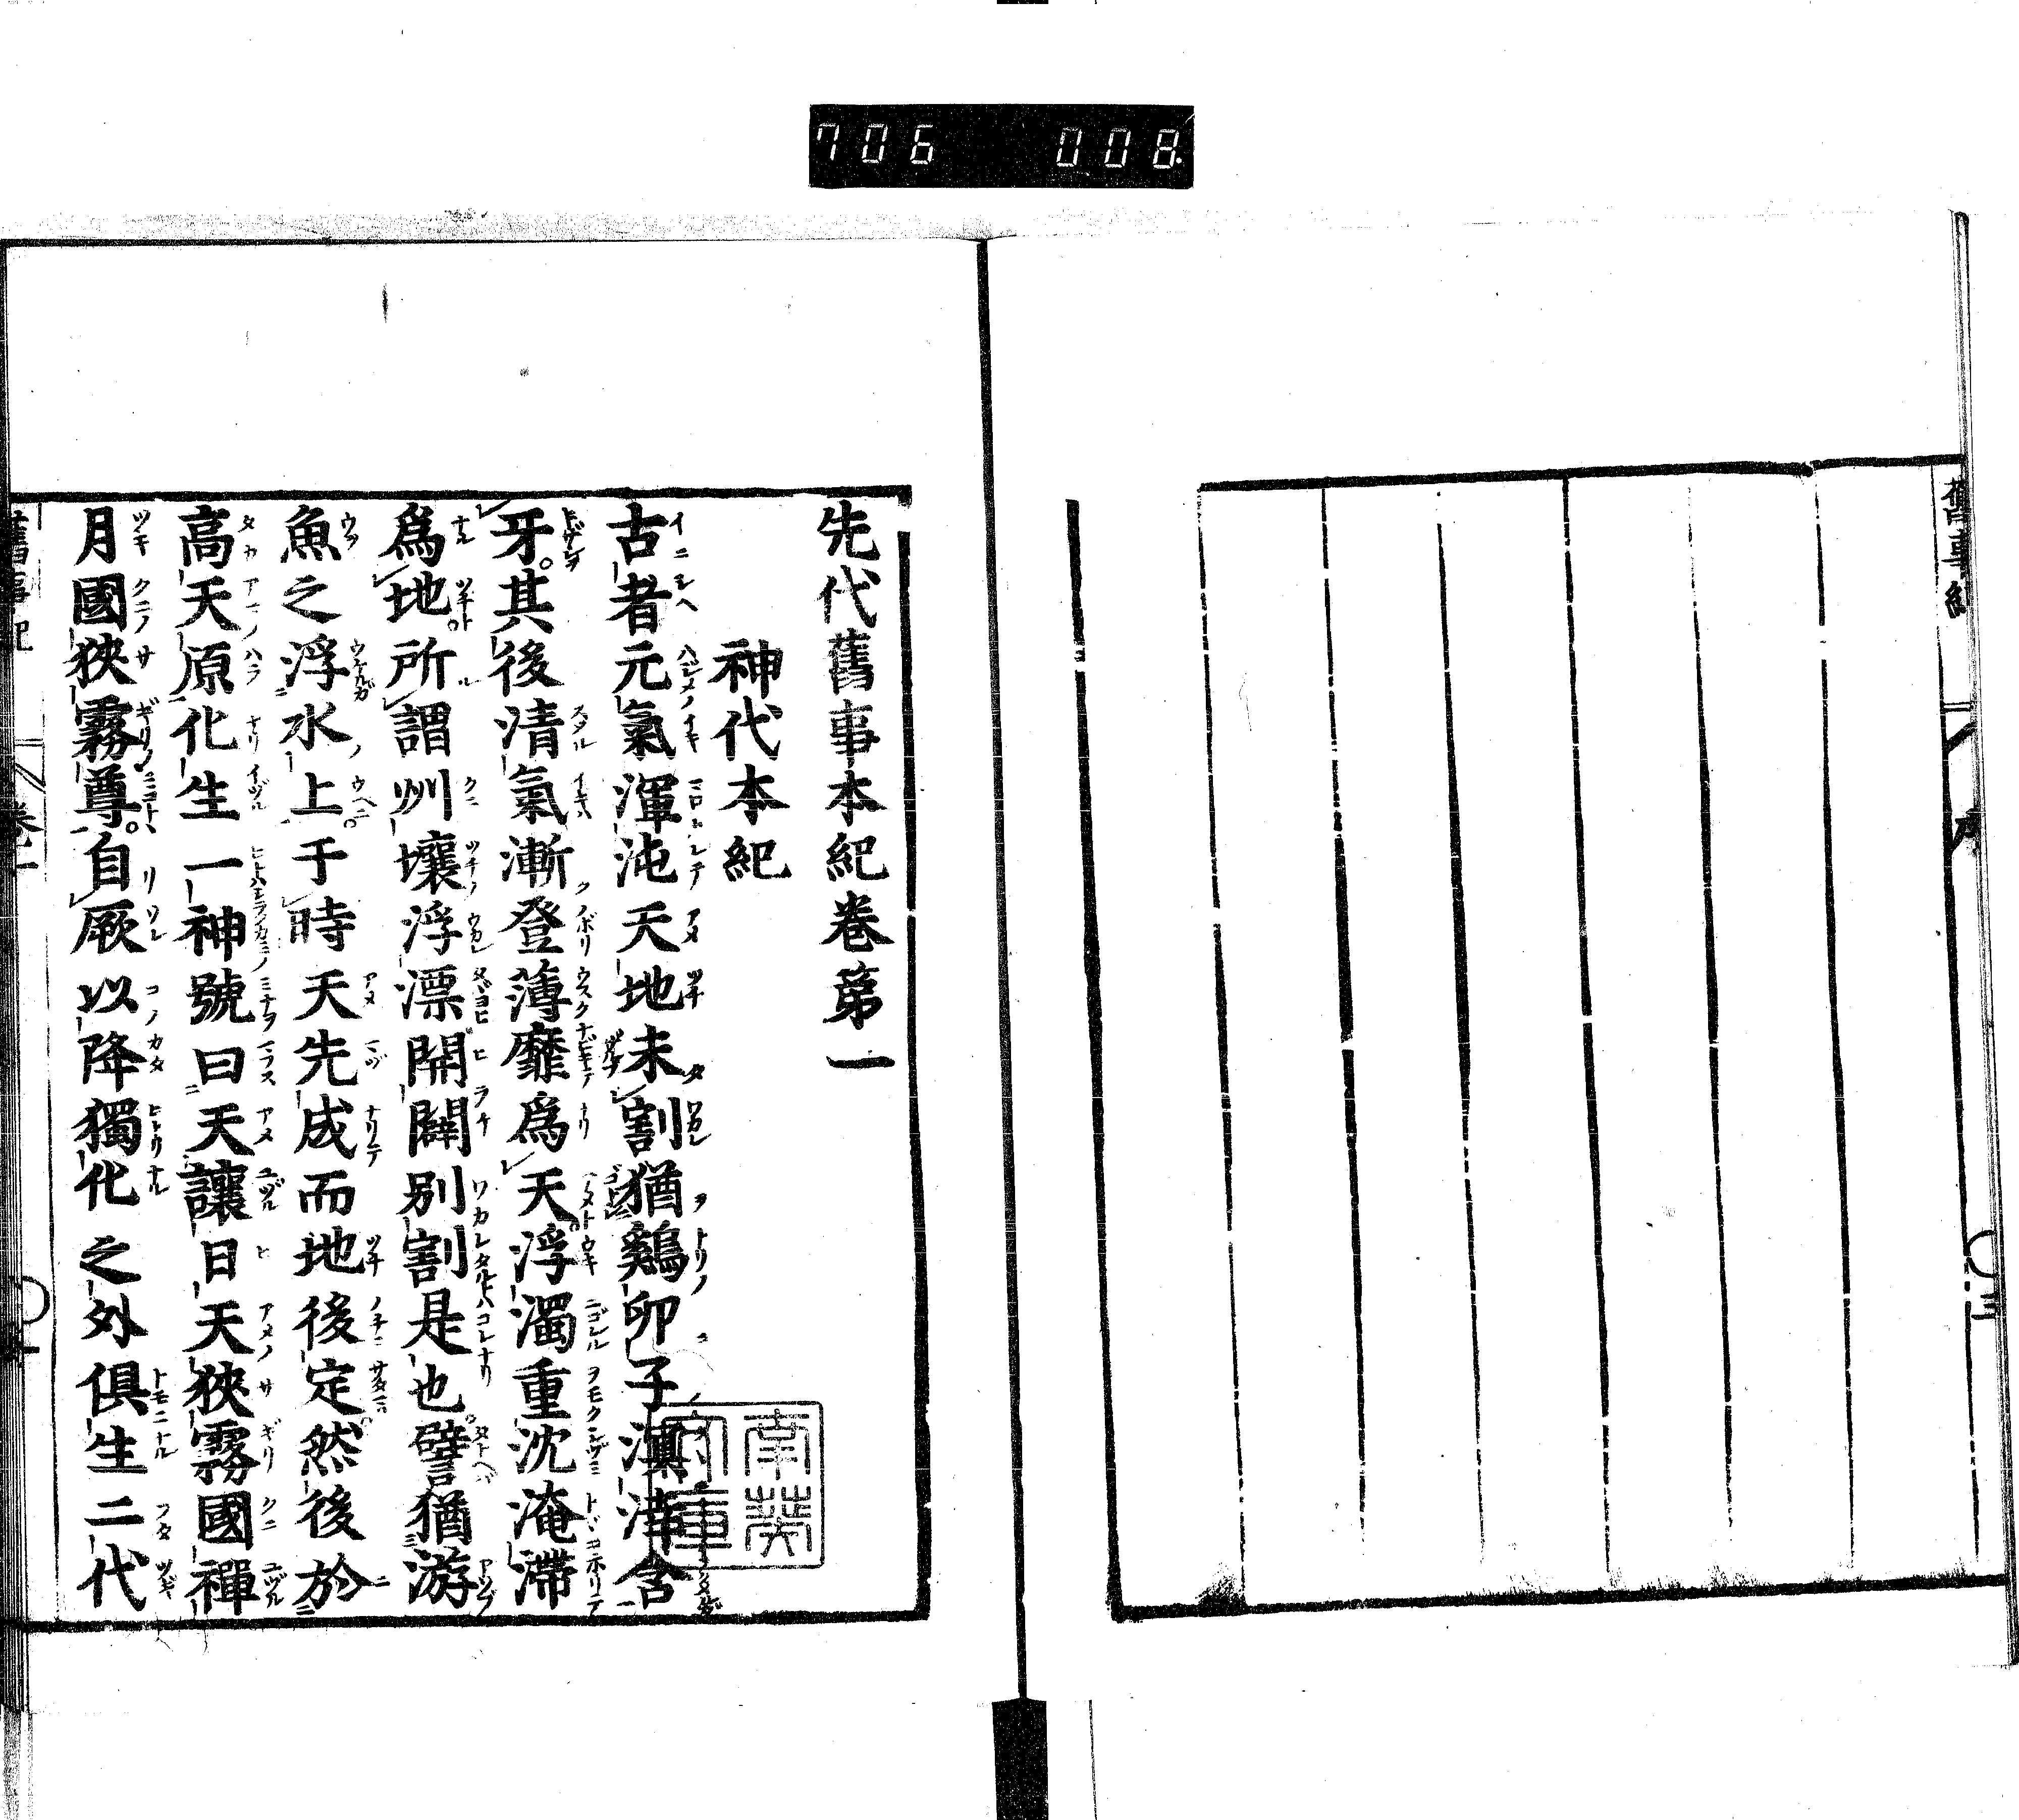 706 008
舊事紀
序
三
先代舊事本紀卷第一
神代本紀
古者元氣渾沌天地未割猶鷄卵子溟涬含
牙。其後清氣漸登薄靡爲天浮濁重沈淹滯
爲地。所謂州壤浮漂開闢別割是也。譬猶游
魚之浮水上。于時天先成而地後定。然後於
高天原化生一神號曰天讓日天狹霧國禪
月國狹霧尊。自厥以降獨化之外俱生二代
舊事紀
卷一